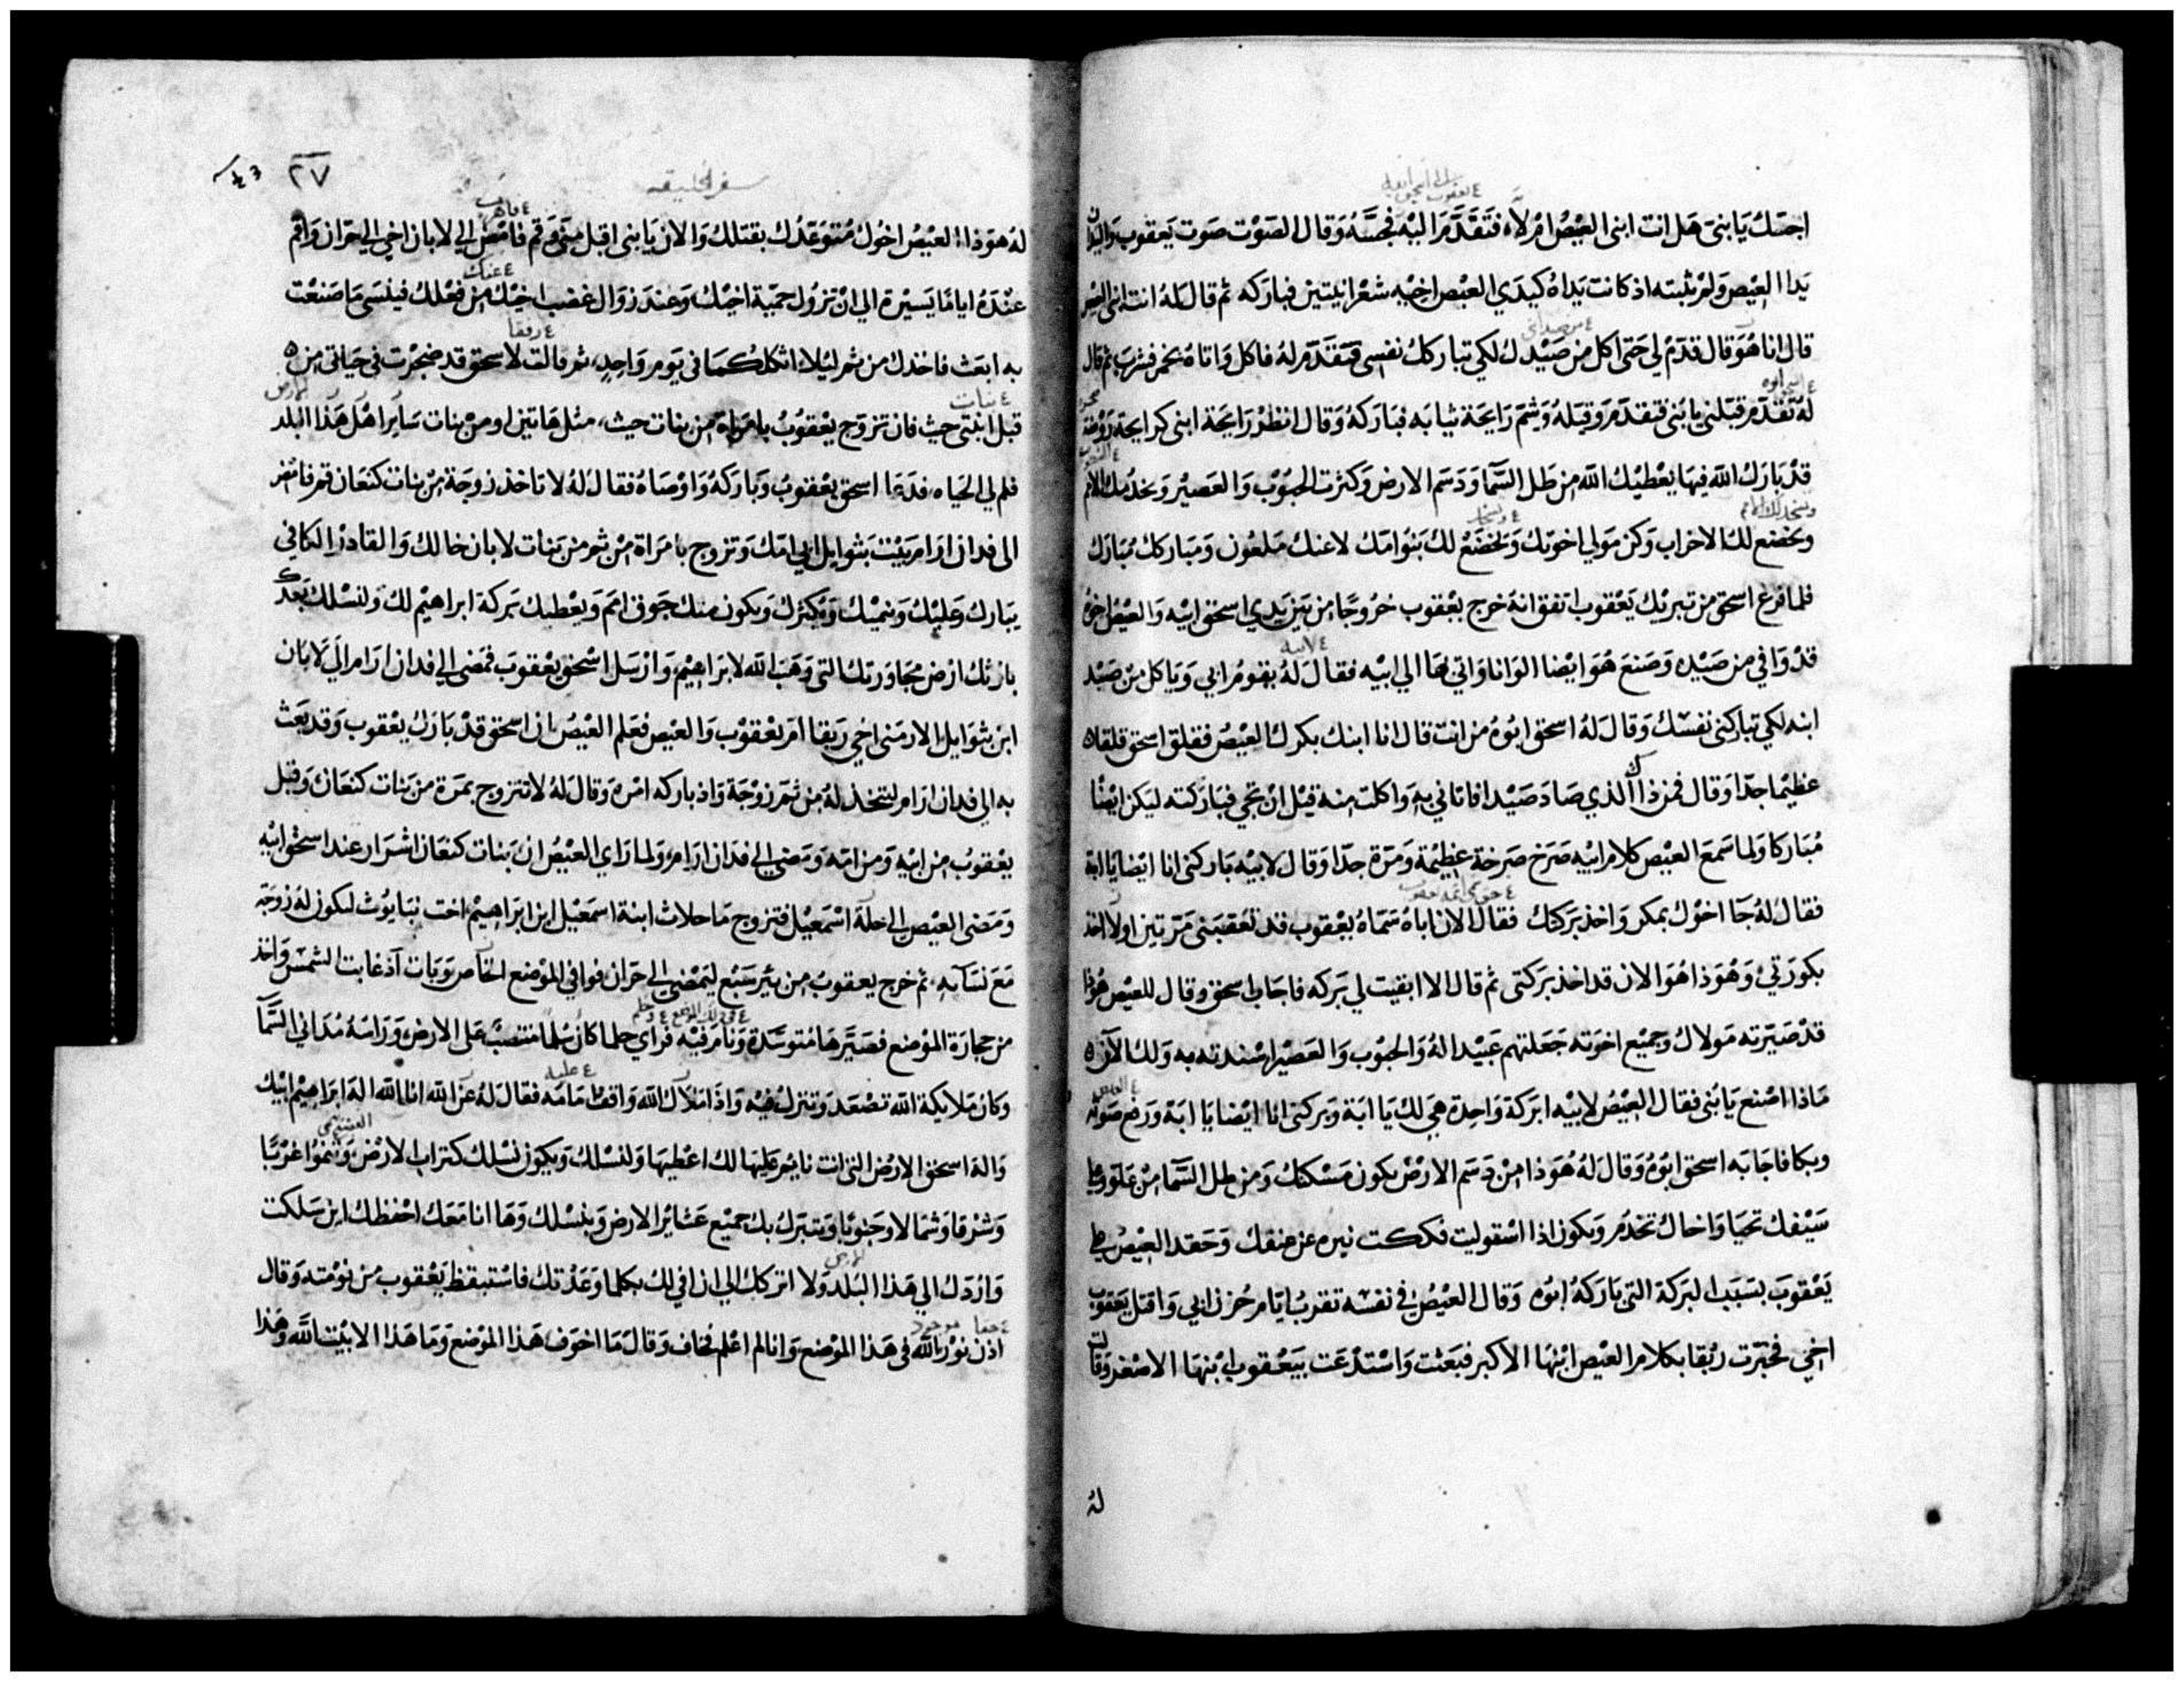 اجسك يا بنى هل انت ابنى العيص ام لا، فتقدم اليه فجسه وقال الصوت صوت يعقوب واليدان
يدا العيص ولم يثبته اذ كانت يداه كيدي العيص اخيه شعرانيتين فباركه ثم قال له انت ابنى العيص
قال انا هو وقال قدم لي حتى اكل من صيدك لكي تباركك نفسى فتقدم له فاكل واتاه بخمر فشرب ثم قال
له تقدم قبلنى يا بنى فتقدم وقبله وشم رايحة ثيابه فباركه وقال انظر رايحة ابنى كرايحة روضة
قد بارك الله فيها يعطيك الله من طل السما ودسم الارض وكثرت الحبوب والعصير ويخدمك الامم
ويخضع لك الاحزاب وكن مولي اخوتك ويخضع لك بنوا امك لاعنك ملعون ومباركك مبارك
فلما فرغ اسحق من تبريك يعقوب اتفق انه خرج يعقوب خروجا من بين يدي اسحق ابيه والعيص اخوه
قد وافي من صيده وصنع هو ايضا الوانا واتي بها الي ابيه فقال له يقوم ابي وياكل من صيد
ابنه لكي تباركنى نفسك وقال له اسحق ابوه من انت قال انا ابنك بكرك العيص فقلق اسحق قلقا
عظيما جدا وقال فمن ذاك الذي صاد صيدا فاتاني به واكلت منه قبل ان تجي فباركته ليكن ايضا
مباركا ولما سمع العيص كلام ابيه صرخ صرخة عظيمة ومرة جدا وقال لابيه باركنى انا ايضا يا ابة
فقال له جا اخوك بمكر واخذ بركتك فقال الان اباه سماه يعقوب قد تعقبنى مرتين اولا اخذ
بكورتي وهوذا هو الان قد اخذ بركتى ثم قال الا ابقيت لي بركه فاجاب اسحق وقال للعيص هوذا
قد صيرته مولاك وجميع اخوته جعلتهم عبيدا له والحبوب والعصير اسندته به ولك الان
ماذا اصنع يا بنى فقال العيص لابيه ابركة واحدة هي لك يا ابة وبركنى انا ايضا يا ابة ورفع صوته
وبكا فاجابه اسحق ابوه وقال له هوذا من دسم الارض يكون مسكنك ومن طل السما من علو وعلي
سيفك تحيا واخاك تخدم ويكون اذا استوليت فككت نيره عن عنقك وحقد العيص علي
يعقوب بسبب البركة التي باركه ابوه وقال العيص في نفسه تقرب ايام حزن ابي واقتل يعقوب
اخي فخبرت ربقا بكلام العيص ابنها الاكبر فبعثت واستدعت بيعقوب ابنها الاصغر وقالت
له
سفر الخليقه
٢٧
له هوذا العيص اخوك متوعدك بقتلك والان يا بنى اقبل منى وقم فامض الي لابان اخي الي حران واقم
عنده اياما يسيرة الي ان تزول حمية اخيك وعند زوال غضب اخيك من فعلك فينسى ما صنعت
به ابعث فاخذك من ثم ليلا اثكلكما في يوم واحد، ثم قالت لاسحق قد ضجرت في حياتى من
قبل ابنتى حيث فان تزوج يعقوب بامراة من بنات حيث، مثل هاتين او من بنات ساير اهل هذا البلد
فلم لي الحياه، فدعا اسحق يعقوب وباركه واوصاه فقال له لا تاخذ زوجة من بنات كنعان قم فامض
الى فدان ارام بيت بثوايل ابي امك وتزوج بامراة من ثم من بنات لابان خالك والقادر الكافي
يبارك عليك وينميك ويكثرك ويكون منك جوق امم ويعطيك بركة ابراهيم لك ولنسلك بعدك
بارثك ارض مجاورتك التى وهب الله لابراهيم، وارسل اسحق يعقوب فمضى الي فدان ارام الي لابان
ابن بثوايل الارمنى اخي ربقا ام يعقوب والعيص فعلم العيص ان اسحق قد بارك يعقوب وقد بعث
به الي فدان ارام ليتخذ له من ثم زوجة واذ باركه امره وقال له لا تتزوج بمرة من بنات كنعان وقبل
يعقوب من ابيه ومن امه ومضى الي فدان ارام، ولما راي العيص ان بنات كنعان اشرار عند اسحق ابيه
ومضى العيص الي حلة اسمعيل فتزوج ماحلاث ابنة اسمعيل ابن ابراهيم اخت نبايوث لتكون له زوجة
مع نسآيه، ثم خرج يعقوب من بير سبع ليمضي الي حران فوافي الموضع الخاص وبات اذ غابت الشمس واخذ
من حجارة الموضع فصيرها متوسدة ونام فيه فراي حلما كان سلما منتصب على الارض وراسه مداني السمآ
وكان ملايكة الله تصعد وتنزل فيه واذا ملاك الله واقف امامه فقال له عن الله انا الله اله ابراهيم ابيك
واله اسحق الارض التى انت نايم عليها لك اعطيها ولنسلك ويكون نسلك كتراب الارض وتنموا غربا
وشرقا وشمالا وجنوبا ويتبرك بك جميع عشاير الارض وبنسلك وها انا معك احفظك اين سلكت
واردك الي هذا البلد ولا اتركك الي ان افي لك بكلما وعدتك فاستيقظ يعقوب من نومته وقال
اذن نور الله في هذا الموضع وانا لم اعلم فخاف وقال ما اخوف هذا الموضع وما هذا الا بيت الله وهذا